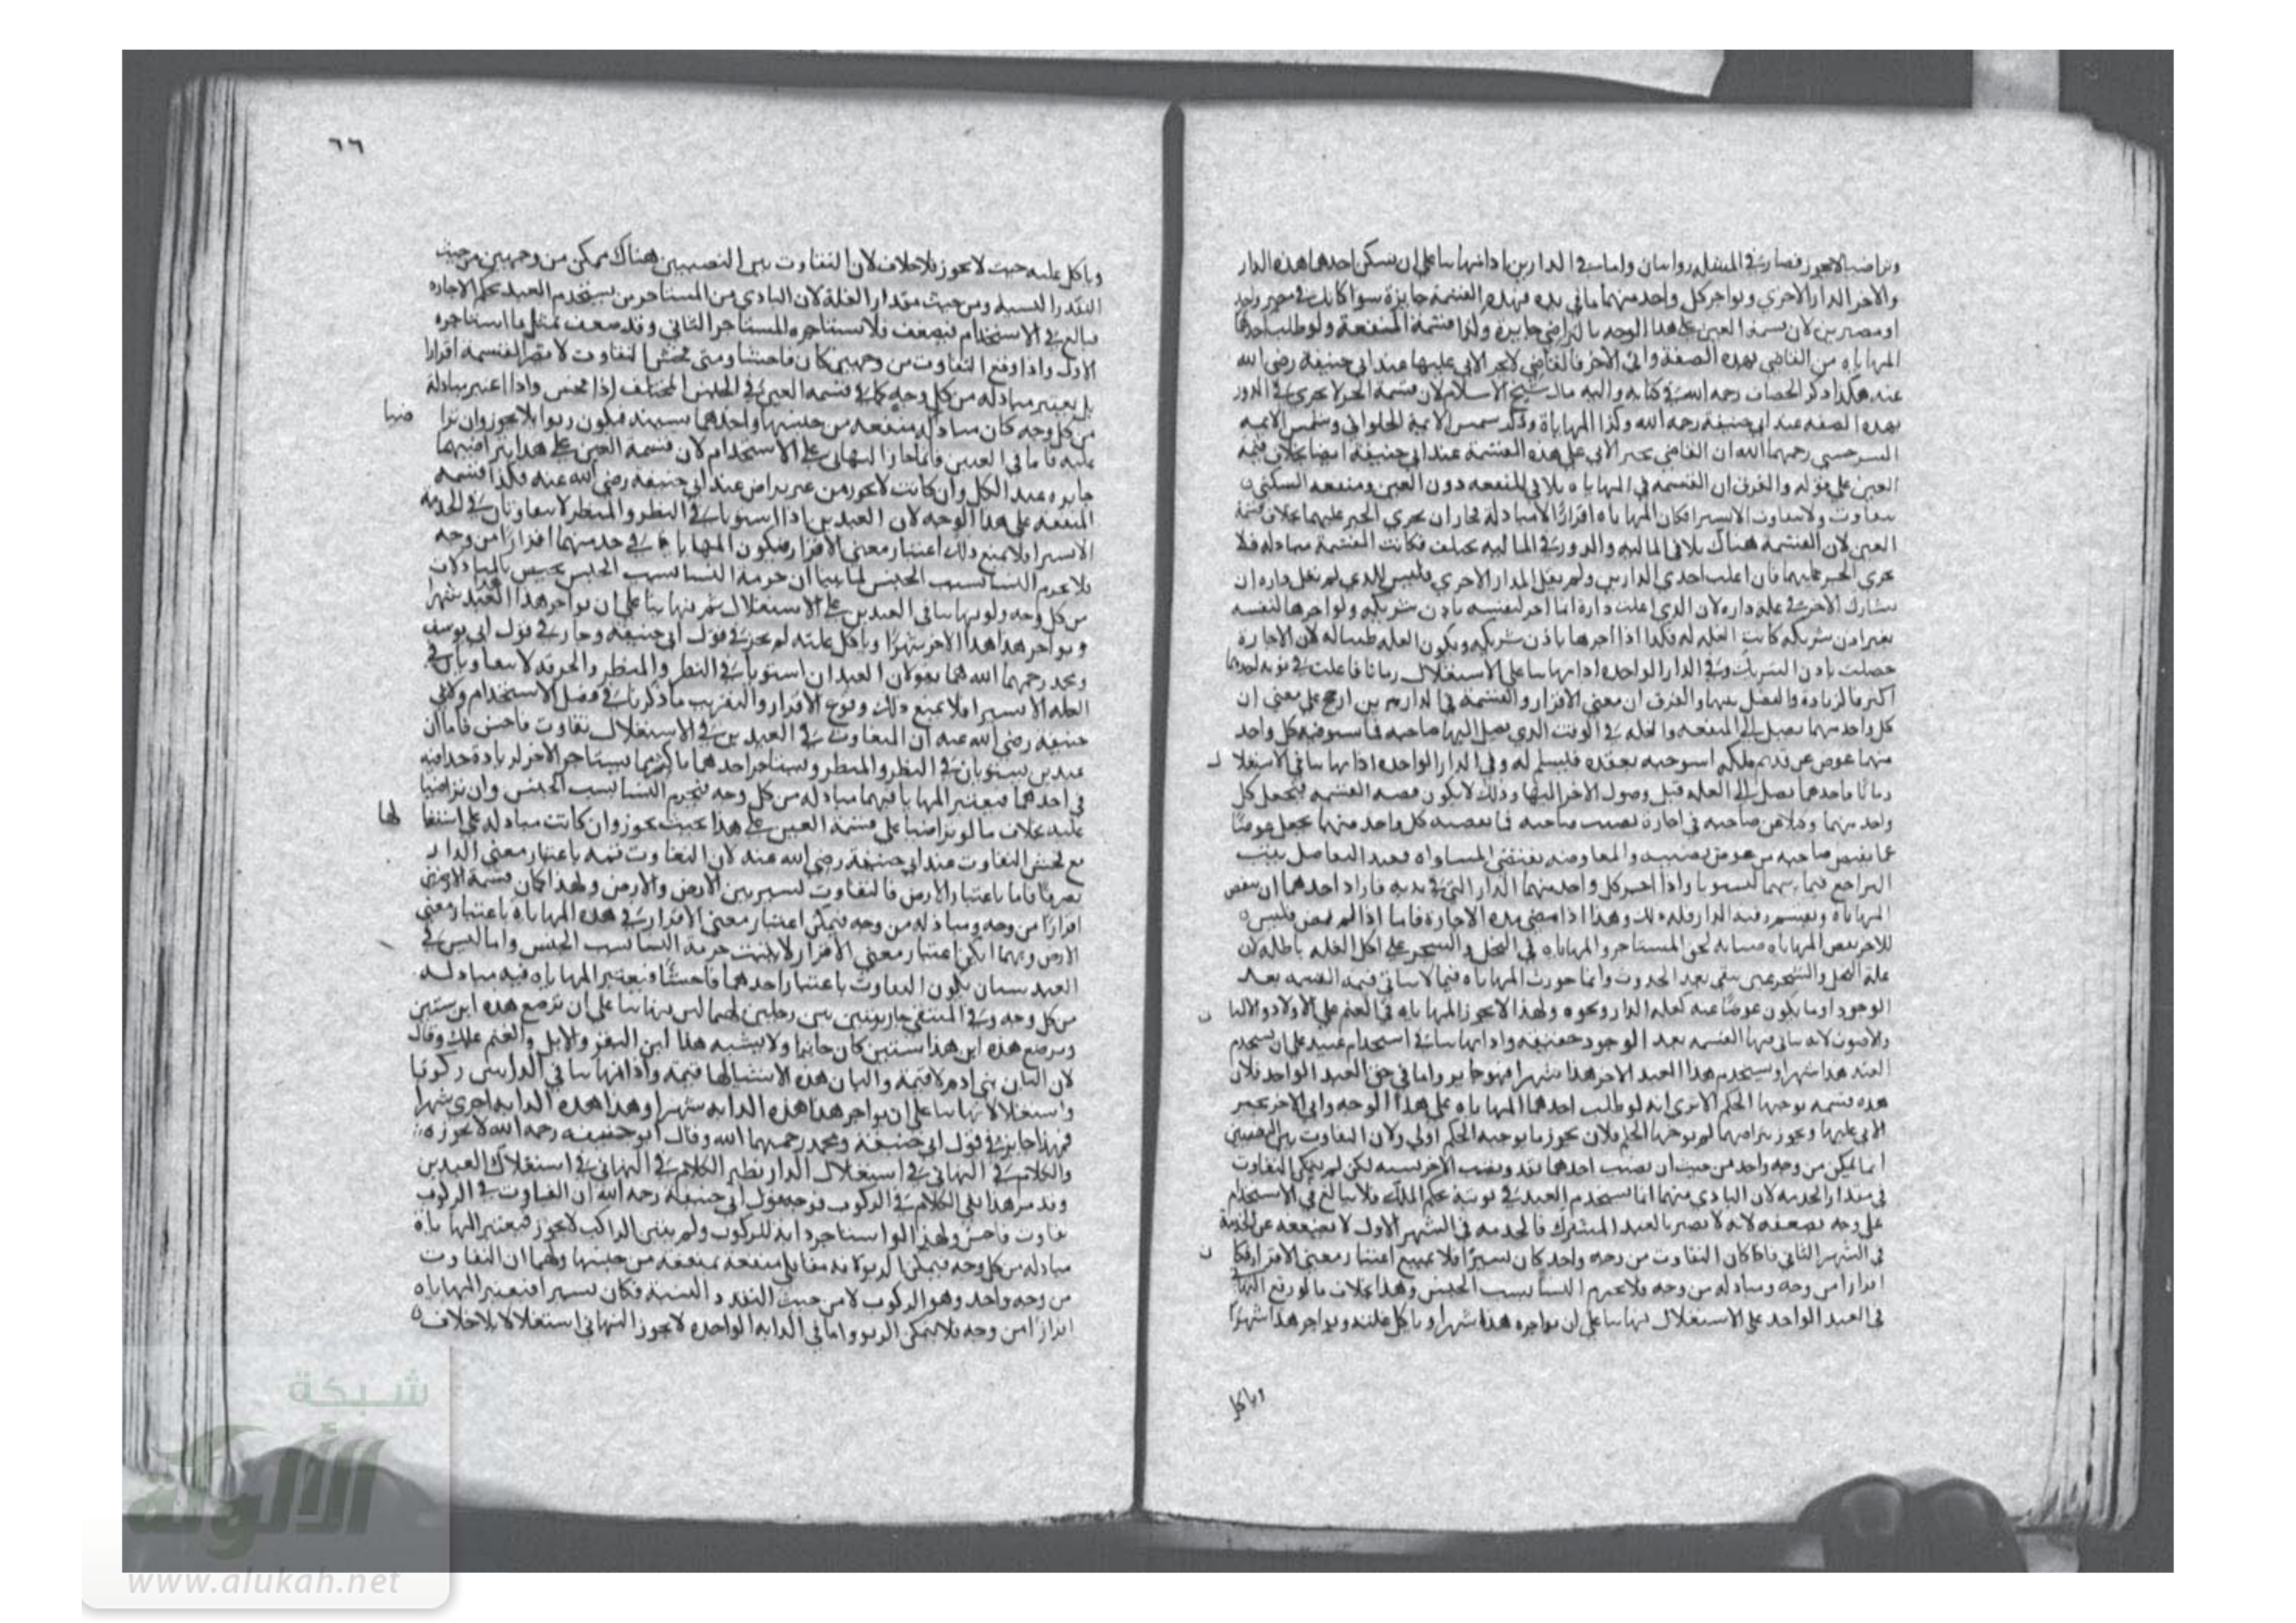 وتراضيا لا يجوز فصار في المسئلة روايتان واما في الدارين اذا تهايئا على ان يسكن احدهما هذه الدار
والاخر الدار الاخرى ويواجر كل واحد منهما ما في يده فهذه القسمة جايزة سوا كانتا في مصر واحد
او مصرين لان قسمة العين على هذا الوجه بالتراضي جايزة وكذا قسمة المنفعة ولو طلب احدهما
المهاياه من القاضي بهذه الصفة وابى الاخر فالقاضي لا يجبر الابي عليها عند ابي حنيفة رضي الله
عنه هكذا ذكر الخصاف رحمه الله في كتابه واليه مال شيخ الاسلام لان قسمة الجبر لا يجرى في الدور
بهذه الصفة عند ابي حنيفة رحمه الله وكذا المهاياة وذكر شمس الايمة الحلواني وشمس الايمه
السرخسي رحمهما الله ان القاضي يجبر الابي على هذه القسمة عند ابي حنيفة ايضا بخلاف قسمة
العين على قوله والفرق ان القسمة في المهاياه يلاقي المنفعه دون العين ومنفعه السكنى
يتفاوت ولا يتفاوت الا يسيرا فكان المهاياه اقرازا لا مبادلة فجاز ان يجرى الجبر عليهما بخلاف قسمة
العين لان القسمة هناك يلاقي المالية والدور في المالية يختلف فكانت القسمة مبادله فلا
يجرى الجبر عليهما فان اغلت احدى الدارين ولم يغل الدار الاخرى فليس للذي لم تغل داره ان
يشارك الاخر في غلة داره لان الذي اغلت داره انما اجر لنفسه باذن شريكه ولو اجرها لنفسه
بغير اذن شريكه كانت الغله له فكذا اذا اجرها باذن شريكه ويكون الغله طيبا له لان الاجارة
حصلت باذن الشريك وفي الدار الواحده اذا تهايئا على الاستغلال زمانا فاغلت في نوبه احدهما
اكثر فالزيادة والفضل بينهما والفرق ان معنى الاقراز والقسمة في الدارين ارجح على معنى ان
كل واحد منهما يصل الى المنفعه والغله في الوقت الذي يصل اليها صاحبه فما يستوفيه كل واحد
منهما عوض عن قديم ملكه استوجبه بعقده فيسلم له وفي الدار الواحده اذا تهايئا في الاستغلال
زمانا فاحدهما يصل الى الغله قبل وصول الاخر اليها وذلك لا يكون قضيه القسمه فيجعل كل
واحد منهما وكيلا عن صاحبه في اجارة نصيب صاحبه فما يقبضه كل واحد منهما يجعل عوضا
عما يقبض صاحبه من عوض نصيبه والمعاوضه يقتضي المساواه فعند التفاضل يثبت
التراجع فيما بينهما ليستويا واذا اجر كل واحد منهما الدار التي في يديه فاراد احدهما ان ينقض
المهاياة ويقسم رقبة الدار فله ذلك وهذا اذا مضى مدة الاجارة فاما اذا لم يمض فليس
للاخر نقض المهاياه صيانه لحق المستاجر والمهاياه في النخل والشجر على اكل الغله باطله لان
غلة النخل والشجر عين يبقى بعد الحدوث وانما جوزت المهاياه فيما لا يتاتى فيه القسمه بعد
الوجود او ما يكون عوضا عنه كغله الدار ونحوه ولهذا لا يجوز المهاياه في الغنم على الاولاد والالبان
والاصوف لانه يتاتى فيها القسمه بعد الوجود حقيقه واذا تهايئا في استخدام عبد على ان يستخدم
العبد هذا شهرا ويستخدم هذا العبد الاخر هذا شهرا فهو جايز واما في حق العبد الواحد فلان
هذه قسمه يوجبها الحكم الا ترى انه لو طلب احدهما المهاياه على هذا الوجه وابى الاخر يجبر
الابي عليها ويجوز بتراضيهما لم يوجبها الحكم فلان يجوز ما يوجبه الحكم اولى ولان التفاوت بين النصيبين
انما يمكن من وجه واحد من حيث ان نصيب احدهما نقد ونصيب الاخر نسيه لكن لم يتمكن التفاوت
في مقدار الخدمه لان البادي منهما انما يستخدم العبد في نوبته بحكم الملك فلا يبالغ في الاستخدام
على وجه يضعفه لانه لا يضر بالعبد المشترك فالخدمه في الشهر الاول لا يضعفه عن الخدمة
في الشهر الثاني فاذا كان التفاوت من وجه واحد كان يسيرا فلا يمنع اعتبار معنى الاقراز فكان
اقرازا من وجه ومبادلة من وجه فلا يحرم النسا بسبب الجنس وهذا بخلاف ما لو وقع التهائي
في العبد الواحد على الاستغلال تهايئا على ان يواجره هذا شهرا وياكل غلته ويواجر هذا شهرا
وياكل
٦٦
وياكل غلته حيث لا يجوز بلا خلاف لان التفاوت بين النصيبين هناك ممكن من وجهين من حيث
النقد والنسية ومن حيث مقدار الغلة لان البادي من المستاجر من يستخدم العبد بحكم الاجاره
فبالغ في الاستخدام فيضعف فلا يستاجره المستاجر الثاني وقد ضعف بمثل ما استاجره
الاول واذا وقع التفاوت من وجهين كان فاحشا ومتى فحش التفاوت لا يعتبر القسمه اقرازا
بل يعتبر مبادله من كل وجه كما في قسمه العين في الجنس المختلف اذا فحش واذا اعتبر مبادلة
من كل وجه كان مبادله منفعه من جنسها واحدهما نسيئة فيكون ربوا فلا يجوز وان تراضيا
عليه فاما في العبدين فانما جاز التهائي على الاستخدام لان قسمة العين على هذا بتراضيهما
جايزه عند الكل وان كانت لا يجوز من غير تراض عند ابي حنيفة رضي الله عنه فكذا قسمه
المنفعه على هذا الوجه لان العبدين اذا استويا في النظر والمنظر لا يتفاوتان في الخدمة
الا يسيرا ولا يمنع ذلك اعتبار معنى الاقراز فيكون المهاياه في خدمتهما اقرازا من وجه
فلا يحرم النسا بسبب الجنس لما بينا ان حرمة النسا بسبب الجنس يختص بالمبادلات
من كل وجه ولو تهايئا في العبدين على الاستغلال شهرا تهايئا على ان يواجر هذا هذا العبد شهرا
ويواجر هذا هذا الاخر شهرا وياكل غلته لم يجز في قول ابي حنيفه وجاز في قول ابي يوسف
ومحمد رحمهما الله هما يقولان العبدان استويا في النظر والمنظر والحرفه لا يتفاوتان في
الغله الا يسيرا فلا يمنع ذلك وقوع الاقراز والتقريب ما ذكرنا في فصل الاستخدام ولابي
حنيفه رضي الله عنه ان التفاوت في العبدين في الاستغلال تفاوت فاحش فاما ان
عبدين يستويان في النظر والمنظر ويستاجر احدهما باكثر مما يستاجر الاخر لزيادة حذاقته
في احدهما فيعتبر المهاياة فيهما مبادله من كل وجه فيحرم النسا بسبب الجنس وان تراضيا
عليه بخلاف ما لو تراضيا على قسمة العين على هذا بحيث يجوز وان كانت مبادلة على استقلالها
مع فحش التفاوت عند ابي حنيفة رضي الله عنه لان التفاوت ثمه باعتبار معنى الدار
تصرفا فاما باعتبار الارض فالتفاوت يسير بين الارض والارض ولهذا كان قسمة الارضين
اقرازا من وجه ومبادله من وجه فيمكن اعتبار معنى الاقراز في هذه المهاياه باعتبار معنى
الارض ومهما امكن اعتبار معنى الاقراز لا يثبت حرمة النسا بسبب الجنس واما ليس في
العبد شيان يكون التفاوت باعتبار احدهما فاحشا فيعتبر المهاياه فيه مبادله
من كل وجه وفي المنتقى جاريتين بين رجلين لهما لبن تهايئا على ان ترضع هذه ابن هذا سنتين
وترضع هذه ابن هذا سنتين كان جايزا ولا يشبه هذا لبن البقر والابل والغنم علل وقال
لان البان بني ادم لا قيمة والبان هذه الاشيا لها قيمة واذا تهايئا في الدابتين ركوبا
واستغلالا تهايئا على ان يواجر هذا هذه الدابه شهرا وهذا هذه الدابه اخرى شهرا
فهذا جايز في قول ابي حنيفة ومحمد رحمهما الله وقال ابو حنيفه رحمه الله لا يجوز
والكلام في التهائي في استغلال الدار نظير الكلام في التهائي في استغلال العبدين
وقد مر هذا بقي الكلام في الركوب فوجه قول ابي حنيفة رحمه الله ان التفاوت في الركوب
تفاوت فاحش ولهذا لو استاجر دابه للركوب ولم يبين الراكب لا يجوز فيعتبر المهاياة
مبادله من كل وجه فيمكن الربوا لانه مقابل منفعه بمنفعه من جنسها ولهما ان التفاوت
من وجه واحد وهو الركوب لا من حيث النقد والنسية فكان يسيرا فيعتبر المهاياه
اقرازا من وجه فلا يتمكن الربوا واما في الدابه الواحده لا يجوز التهائي استغلالا بلا خلاف
شبكة
الألوكة
www.alukah.net